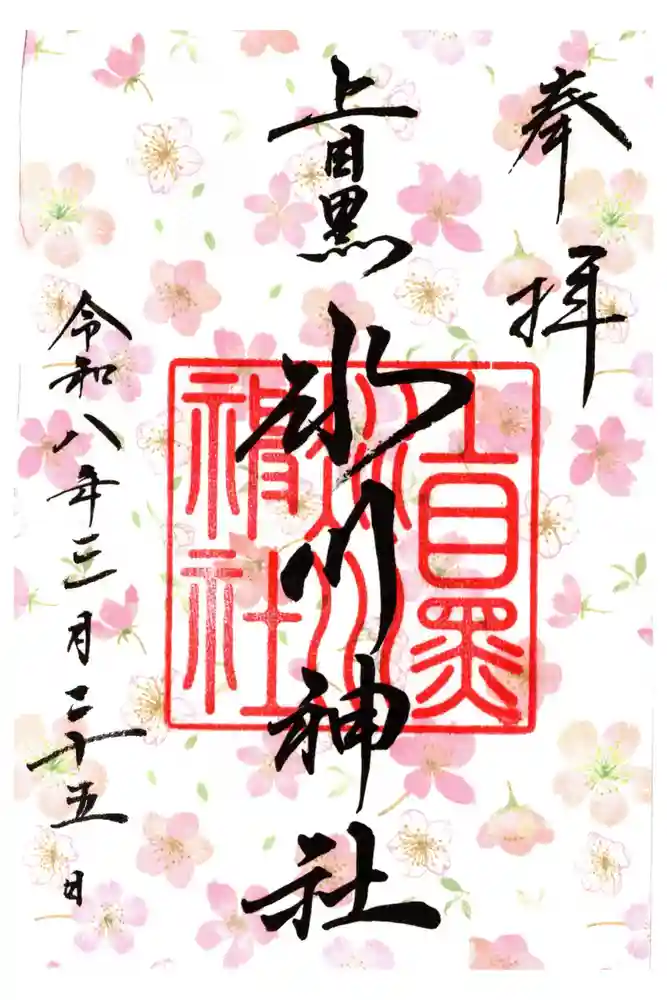 奉拝
上目黒氷川神社
上目黒
氷川
神社
令和八年三月二十五日